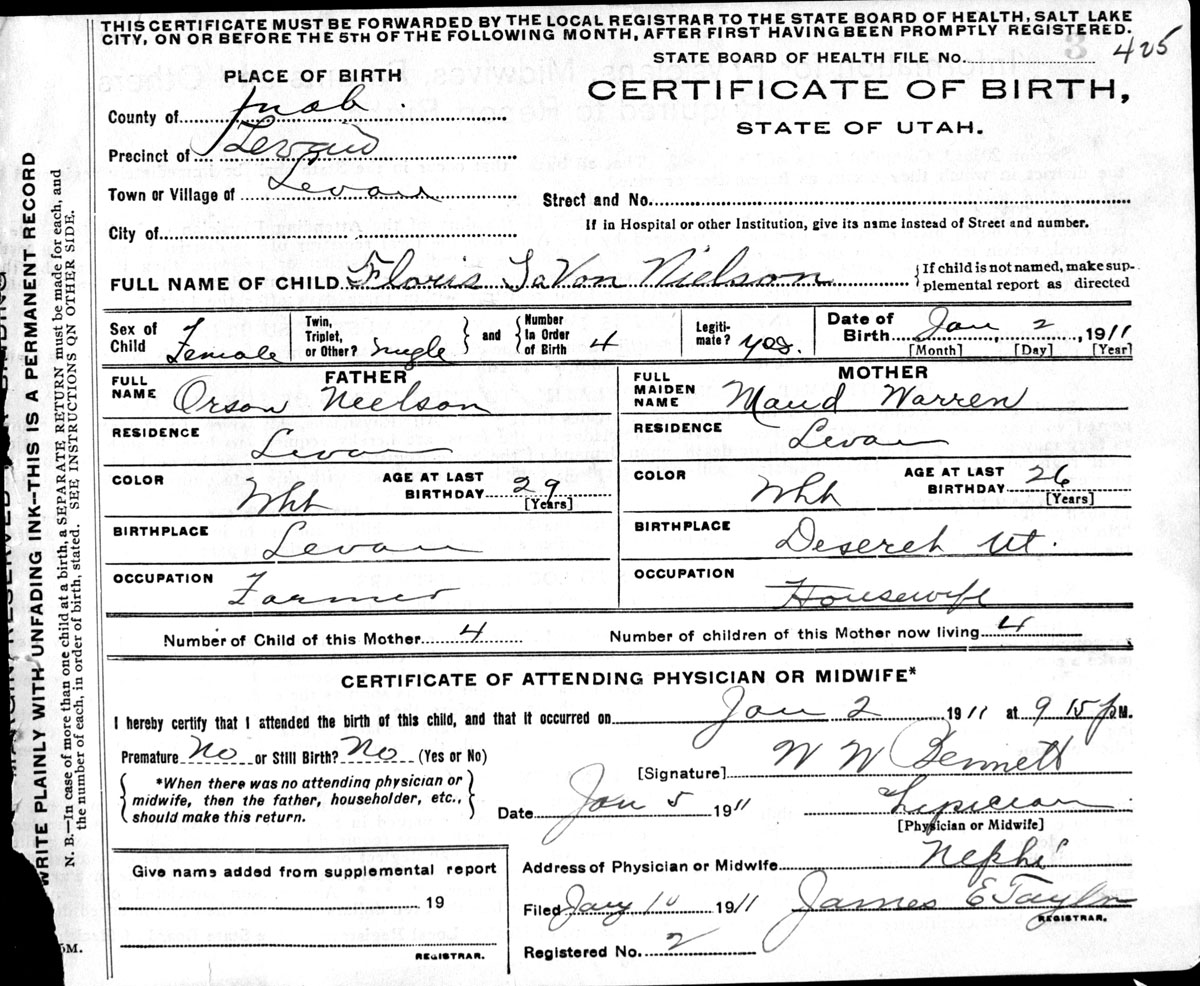 THIS CERTIFICATE MUST BE FORWARDED BY THE LOCAL REGISTRAR TO THE STATE BOARD OF HEALTH, SALT LAKE
CITY, ON OR BEFORE THE 5TH OF THE FOLLOWING MONTH, AFTER FIRST HAVING BEEN PROMPTLY REGISTERED.
STATE BOARD OF HEALTH FILE No. 3 425
PLACE OF BIRTH
CERTIFICATE OF BIRTH,
STATE OF UTAH.
County of Juab
Precinct of Levan
Town or Village of Levan
Street and No.
City of
If in Hospital or other Institution, give its name instead of Street and number.
FULL NAME OF CHILD Floris LaVon Nielson
{If child is not named, make sup-
plemental report as directed
Sex of Child Female
Twin, Triplet, or Other? single } and {
Number in Order of Birth 4
Legiti-mate? yes.
Date of Birth Jan 2, 1911
[Month] [Day] [Year]
FATHER
FULL NAME Orson Neilson
RESIDENCE Levan
COLOR Wht
AGE AT LAST BIRTHDAY 29
[Years]
BIRTHPLACE Levan
OCCUPATION Farmer
MOTHER
FULL MAIDEN NAME Maud Warren
RESIDENCE Levan
COLOR Wht
AGE AT LAST BIRTHDAY 26
[Years]
BIRTHPLACE Deseret Ut.
OCCUPATION Housewife
Number of Child of this Mother 4
Number of children of this Mother now living 4
CERTIFICATE OF ATTENDING PHYSICIAN OR MIDWIFE*
I hereby certify that I attended the birth of this child, and that it occurred on Jan 2 1911 at 9 15 p M.
Premature No or Still Birth? No (Yes or No)
[Signature] W W Bennett
{ *When there was no attending physician or
midwife, then the father, householder, etc.,
should make this return. }
Date Jan 5 1911
[Physician or Midwife]
Give name added from supplemental report
19
REGISTRAR.
Address of Physician or Midwife Nephi
Filed Jany 10 1911 James E Taylor
REGISTRAR.
Registered No. 2
WRITE PLAINLY WITH UNFADING INK—THIS IS A PERMANENT RECORD
N. B.—In case of more than one child at a birth, a SEPARATE RETURN must be made for each, and
the number of each, in order of birth, stated. SEE INSTRUCTIONS ON OTHER SIDE.
5M.